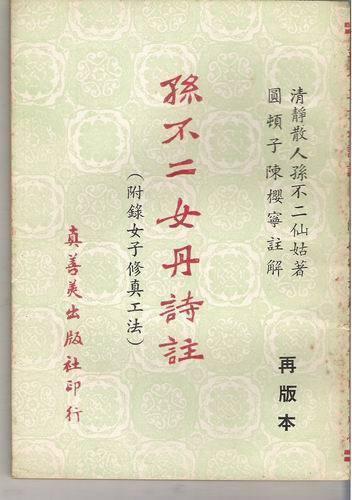 清靜散人孫不二仙姑著
圓頓子陳櫻寧註解
再版本
孫不二女丹詩註
（附錄女子修真工法）
真善美出版社印行